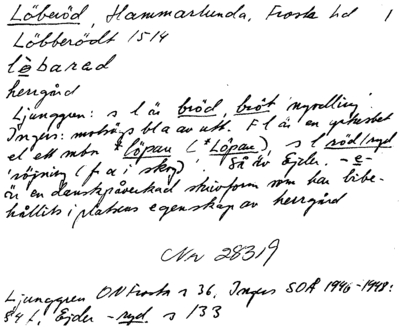 Löberöd, Hammarlunda, Frosta hd 1
Löbberödt 1514
lèbarad
herrgård
Ljunggren: s l är bröd, bröt 'nyodling'.
Ingers: motsägs bl a av utt. F l är en
el ett mbn *Löpau (*Lōpau), s l röd/ryd
'röjning (f a i skog)'. Så äv Ejder. -e-
är en danskpåverkad skrivform som har bibe-
hållits i platsens egenskap av herrgård
Nr 28319
Ljunggren ON Frosta s 36, Ingers SOÅ 1946-1948:
§4 f, Ejder -ryd s 133